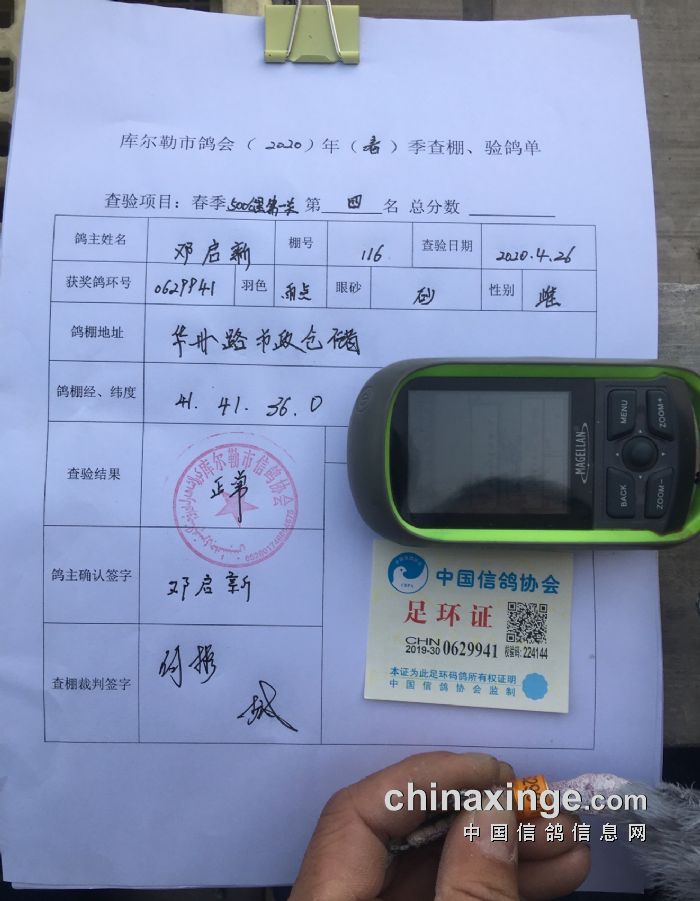 库尔勒市鸽会（2020）年（春）季查棚、验鸽单
查验项目：春季500公里第一关 第 四 名 总分数
鸽主姓名 邓启新 棚号 116 查验日期 2020.4.26
获奖鸽环号 0629941 羽色 雨点 眼砂 砂 性别 雌
鸽棚地址 华山路市政仓储
鸽棚经、纬度 41.41.36.0
查验结果 正常
库尔勒市信鸽协会
鸽主确认签字 邓启新
查棚裁判签字
MAGELLAN
MENU
ZOOM+
BACK
ZOOM-
中国信鸽协会
足环证
CHN
2019-30 0629941 校验码: 224144
本证为此足环码鸽所有权证明
中国信鸽协会监制
chinaxinge.com
中国信鸽信息网